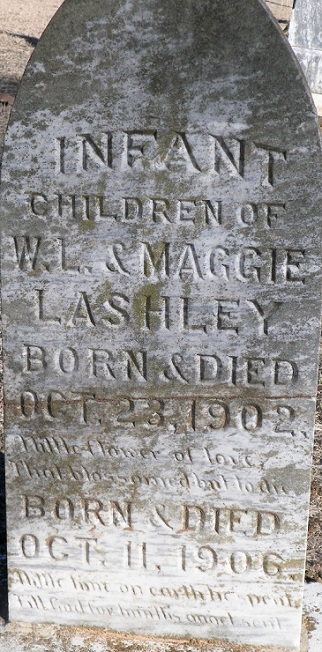 INFANT
CHILDREN OF
W.L. & MAGGIE
LASHLEY
BORN & DIED
OCT. 23, 1902.
A little flower of love,
That blossomed but to die.
BORN & DIED
OCT. 11, 1906.
A little time on earth he spent,
Till God for him His angel sent.